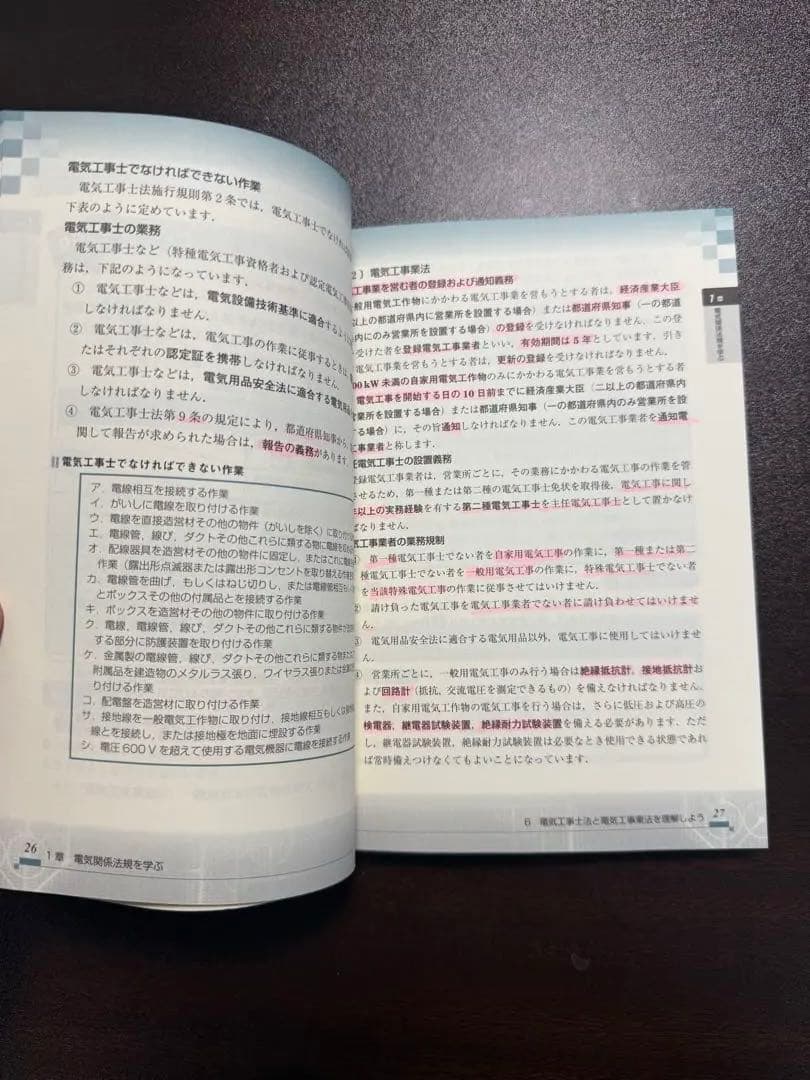 電気工事士でなければできない作業
電気工事士法施行規則第2条では，電気工事士でなければ
下表のように定めています．
電気工事士の業務
電気工事士など（特種電気工事資格者および認定電気工事
務は，下記のようになっています．
① 電気工事士などは，電気設備技術基準に適合するよう
しなければなりません．
② 電気工事士などは，電気工事の作業に従事するときは，
たはそれぞれの認定証を携帯しなければなりません．
③ 電気工事士などは，電気用品安全法に適合する電気用品
しなければなりません．
④ 電気工事士法第9条の規定により，都道府県知事から，
関して報告が求められた場合は，報告の義務があります．
電気工事士でなければできない作業
ア．電線相互を接続する作業
イ．がいしに電線を取り付ける作業
ウ．電線を直接造営材その他の物件（がいしを除く）に取り付け
エ．電線管，線ぴ，ダクトその他これらに類する物に電線を収め
オ．配線器具を造営材その他の物件に固定し，またはこれに電線
作業（露出形点滅器または露出形コンセントを取り替える作業
カ．電線管を曲げ，もしくはねじ切りし，または電線管相互もし
とボックスその他の付属品とを接続する作業
キ．ボックスを造営材その他の物件に取り付ける作業
ク．電線，電線管，線ぴ，ダクトその他これらに類する物が
する部分に防護装置を取り付ける作業
ケ．金属製の電線管，線ぴ，ダクトその他これらに類する物また
附属品を建造物のメタルラス張り，ワイヤラス張りまたは金属
り付ける作業
コ．配電盤を造営材に取り付ける作業
サ．接地線を一般電気工作物に取り付け，接地線相互もしくは接地
線とを接続し，または接地極を地面に埋設する作業
シ．電圧600Vを超えて使用する電気機器に電線を接続する作業
26
1章 電気関係法規を学ぶ
2）電気工事業法
工事業を営む者の登録および通知義務
一般用電気工作物にかかわる電気工事業を営もうとする者は，経済産業大臣
以上の都道府県内に営業所を設置する場合）または都道府県知事（一の都道
内にのみ営業所を設置する場合）の登録を受けなければなりません．この登
受けた者を登録電気工事業者といい，有効期間は5年としています．引き
電気工事業を営もうとする者は，更新の登録を受けなければなりません．
00kW未満の自家用電気工作物のみにかかわる電気工事業を営もうとする者
電気工事を開始する日の10日前までに経済産業大臣（二以上の都道府県内
営業所を設置する場合）または都道府県知事（一の都道府県内のみ営業所を設
場合）に，その旨通知しなければなりません．この電気工事業者を通知電
工事業者と称します．
任電気工事士の設置義務
登録電気工事業者は，営業所ごとに，その業務にかかわる電気工事の作業を管
させるため，第一種または第二種の電気工事士免状を取得後，電気工事に関し
年以上の実務経験を有する第二種電気工事士を主任電気工事士として置かなけ
ばなりません．
気工事業者の業務規制
第一種電気工事士でない者を自家用電気工事の作業に，第一種または第二
種電気工事士でない者を一般用電気工事の作業に，特殊電気工事士でない者
を当該特殊電気工事の作業に従事させてはいけません．
② 請け負った電気工事を電気工事業者でない者に請け負わせてはいけませ
ん．
③ 電気用品安全法に適合する電気用品以外，電気工事に使用してはいけませ
ん．
営業所ごとに，一般用電気工事のみ行う場合は絶縁抵抗計，接地抵抗計お
よび回路計（抵抗，交流電圧を測定できるもの）を備えなければなりません．
また，自家用電気工作物の電気工事を行う場合は，さらに低圧および高圧の
検電器，継電器試験装置，絶縁耐力試験装置を備える必要があります．ただ
し，継電器試験装置，絶縁耐力試験装置は必要なとき使用できる状態であれ
ば常時備えつけなくてもよいことになっています．
1章
電気関係法規を学ぶ
6 電気工事士法と電気工事業法を理解しよう
27